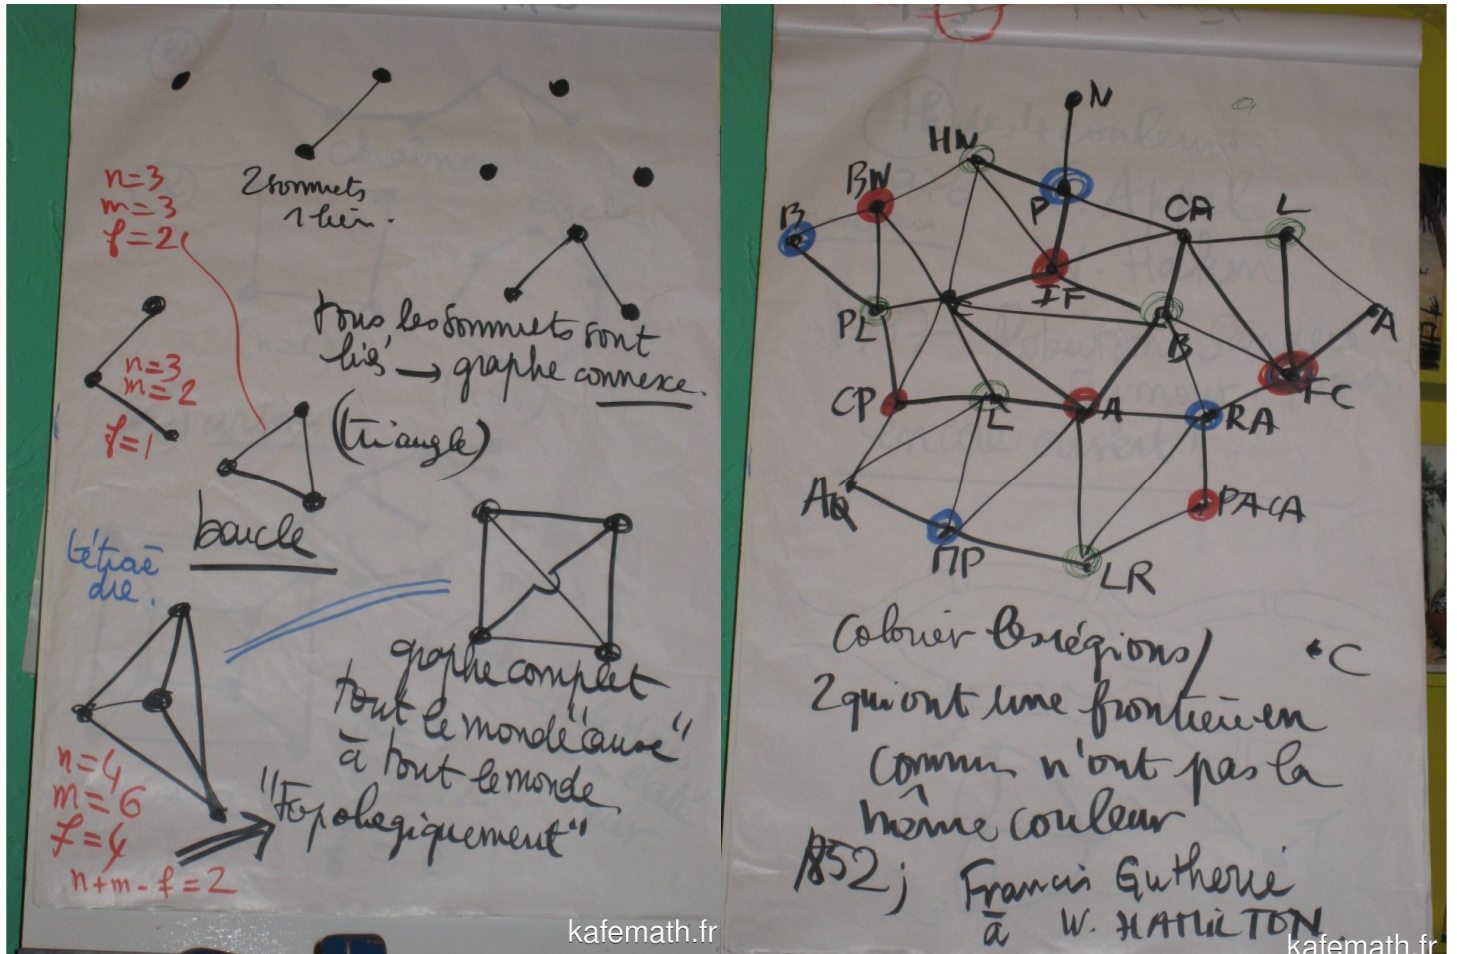 n=3
m=3
f=2
2 sommets
1 lien.
tous les sommets sont
liés → graphe connexe.
n=3
m=2
f=1
(triangle)
boucle
tétraè
dre.
graphe complet
tout le monde "cause"
à tout le monde
"Topologiquement"
n=4
m=6
f=4
n+m-f=2
kafemath.fr
N
HN
BN
P
B
CA
L
IF
PL
C
B
A
CP
L
A
RA
FC
AQ
MP
PACA
LR
Colorier les régions/
•C
2 qui ont une frontière en
commun n'ont pas la
même couleur
1852;
Francis Gutherie
à W. HAMILTON.
kafemath.fr